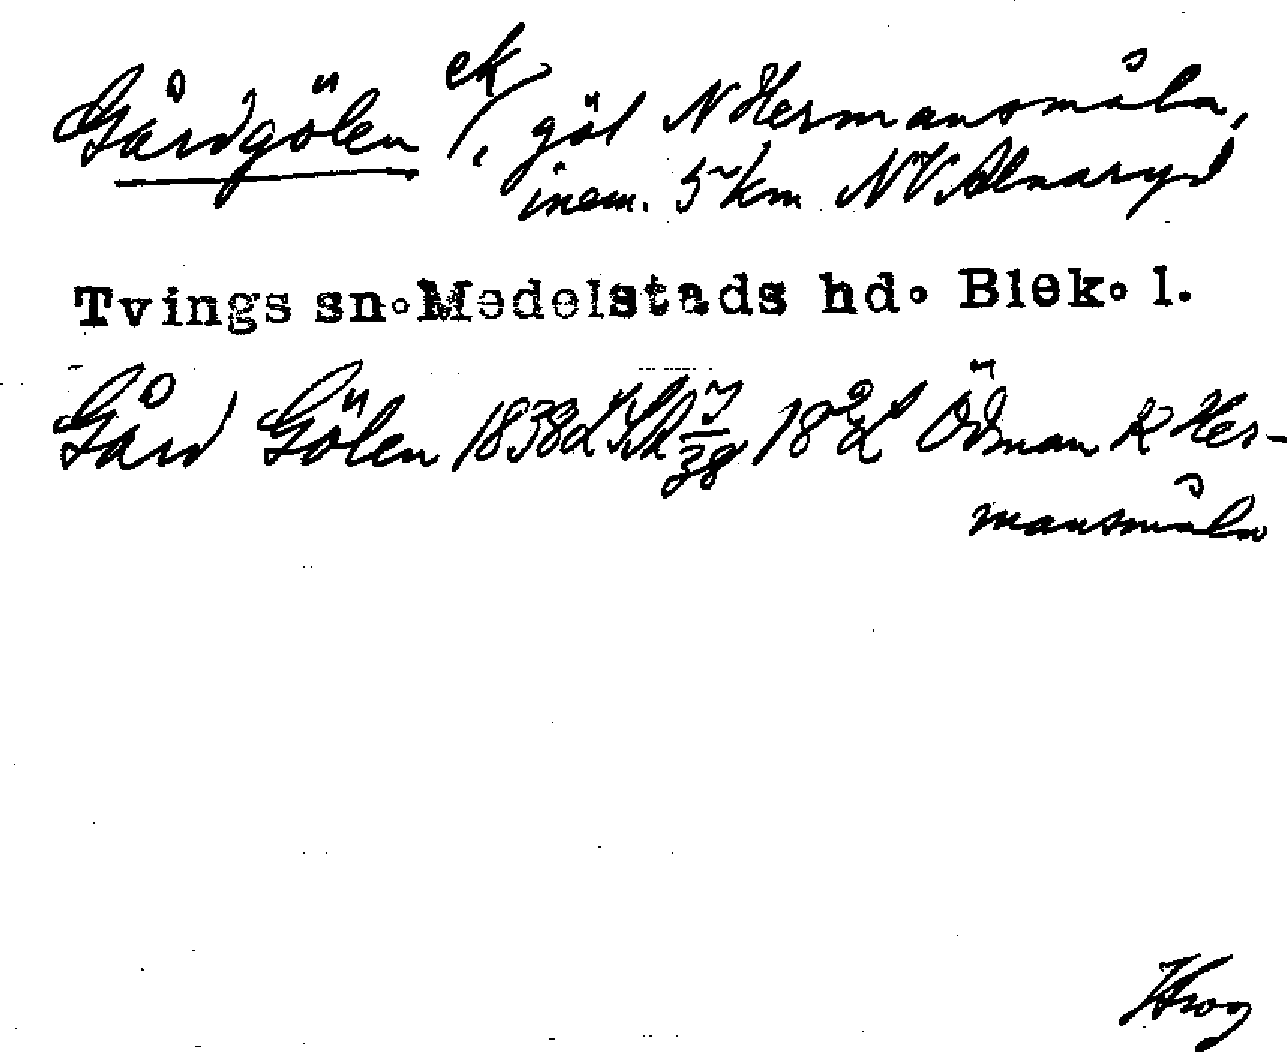 Gårdgölen ek/, göl N Hermansmåla,
inem. 5 km NV Alnaryd
Tvings sn. Medelstads hd. Blek. l.
Gård Gölen 1838 Öđman k Her-
mansmåla